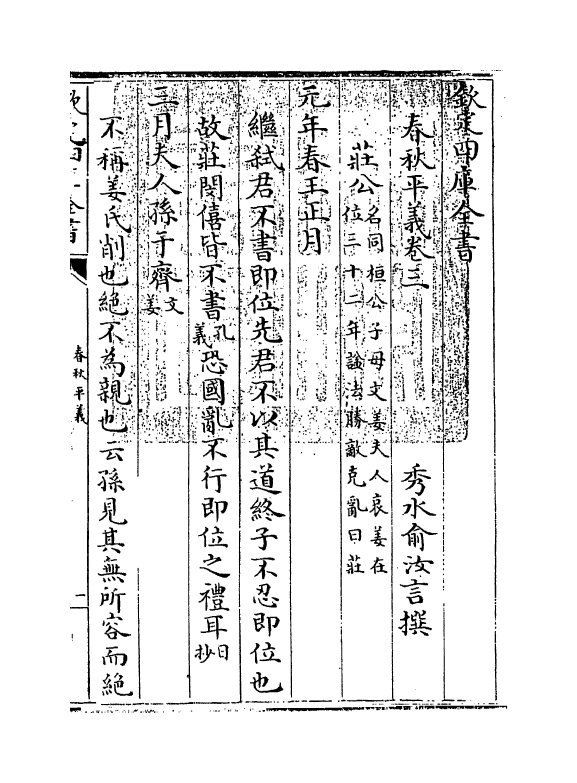 欽定四庫全書
春秋平義卷三
秀水俞汝言撰
莊公名同桓公子母文姜夫人哀姜在位三十二年諡法勝敵克亂曰莊
元年春王正月
繼弒君不書即位先君不以其道終子不忍即位也
故莊閔僖皆不書孔義恐國亂不行即位之禮耳日抄
三月夫人孫于齊文姜
不稱姜氏削也絕不為親也云孫見其無所容而絕
欽定四庫全書
春秋平義
一